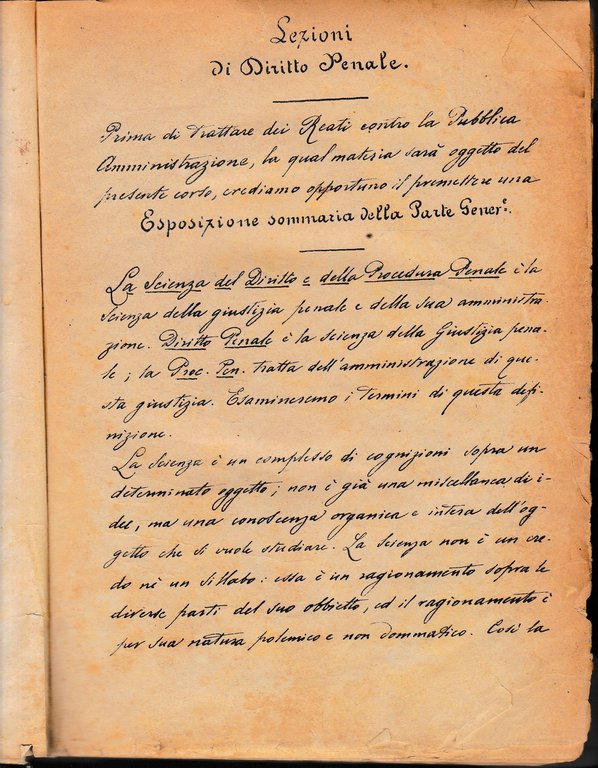 Lezioni
di Diritto Penale.
Prima di trattare dei Reati contro la Pubblica
Amministrazione, la qual materia sarà oggetto del
presente corso, crediamo opportuno il premettere una
Esposizione sommaria della Parte Gener.e.
La Scienza del Diritto e della Procedura Penale è la
scienza della giustizia penale e della sua amministra-
zione. Diritto Penale è la scienza della Giustizia pena-
le; la Proc. Pen. tratta dell'amministrazione di que-
sta giustizia. Esamineremo i termini di questa defi-
nizione.
La Scienza è un complesso di cognizioni sopra un
determinato oggetto; non è già una miscellanea di i-
dee, ma una conoscenza organica e intera dell'og-
getto che si vuole studiare. La Scienza non è un cre-
do nè un sillabo: essa è un ragionamento sopra le
diverse parti del suo obbietto, ed il ragionamento è
per sua natura polemico e non dommatico. Così la